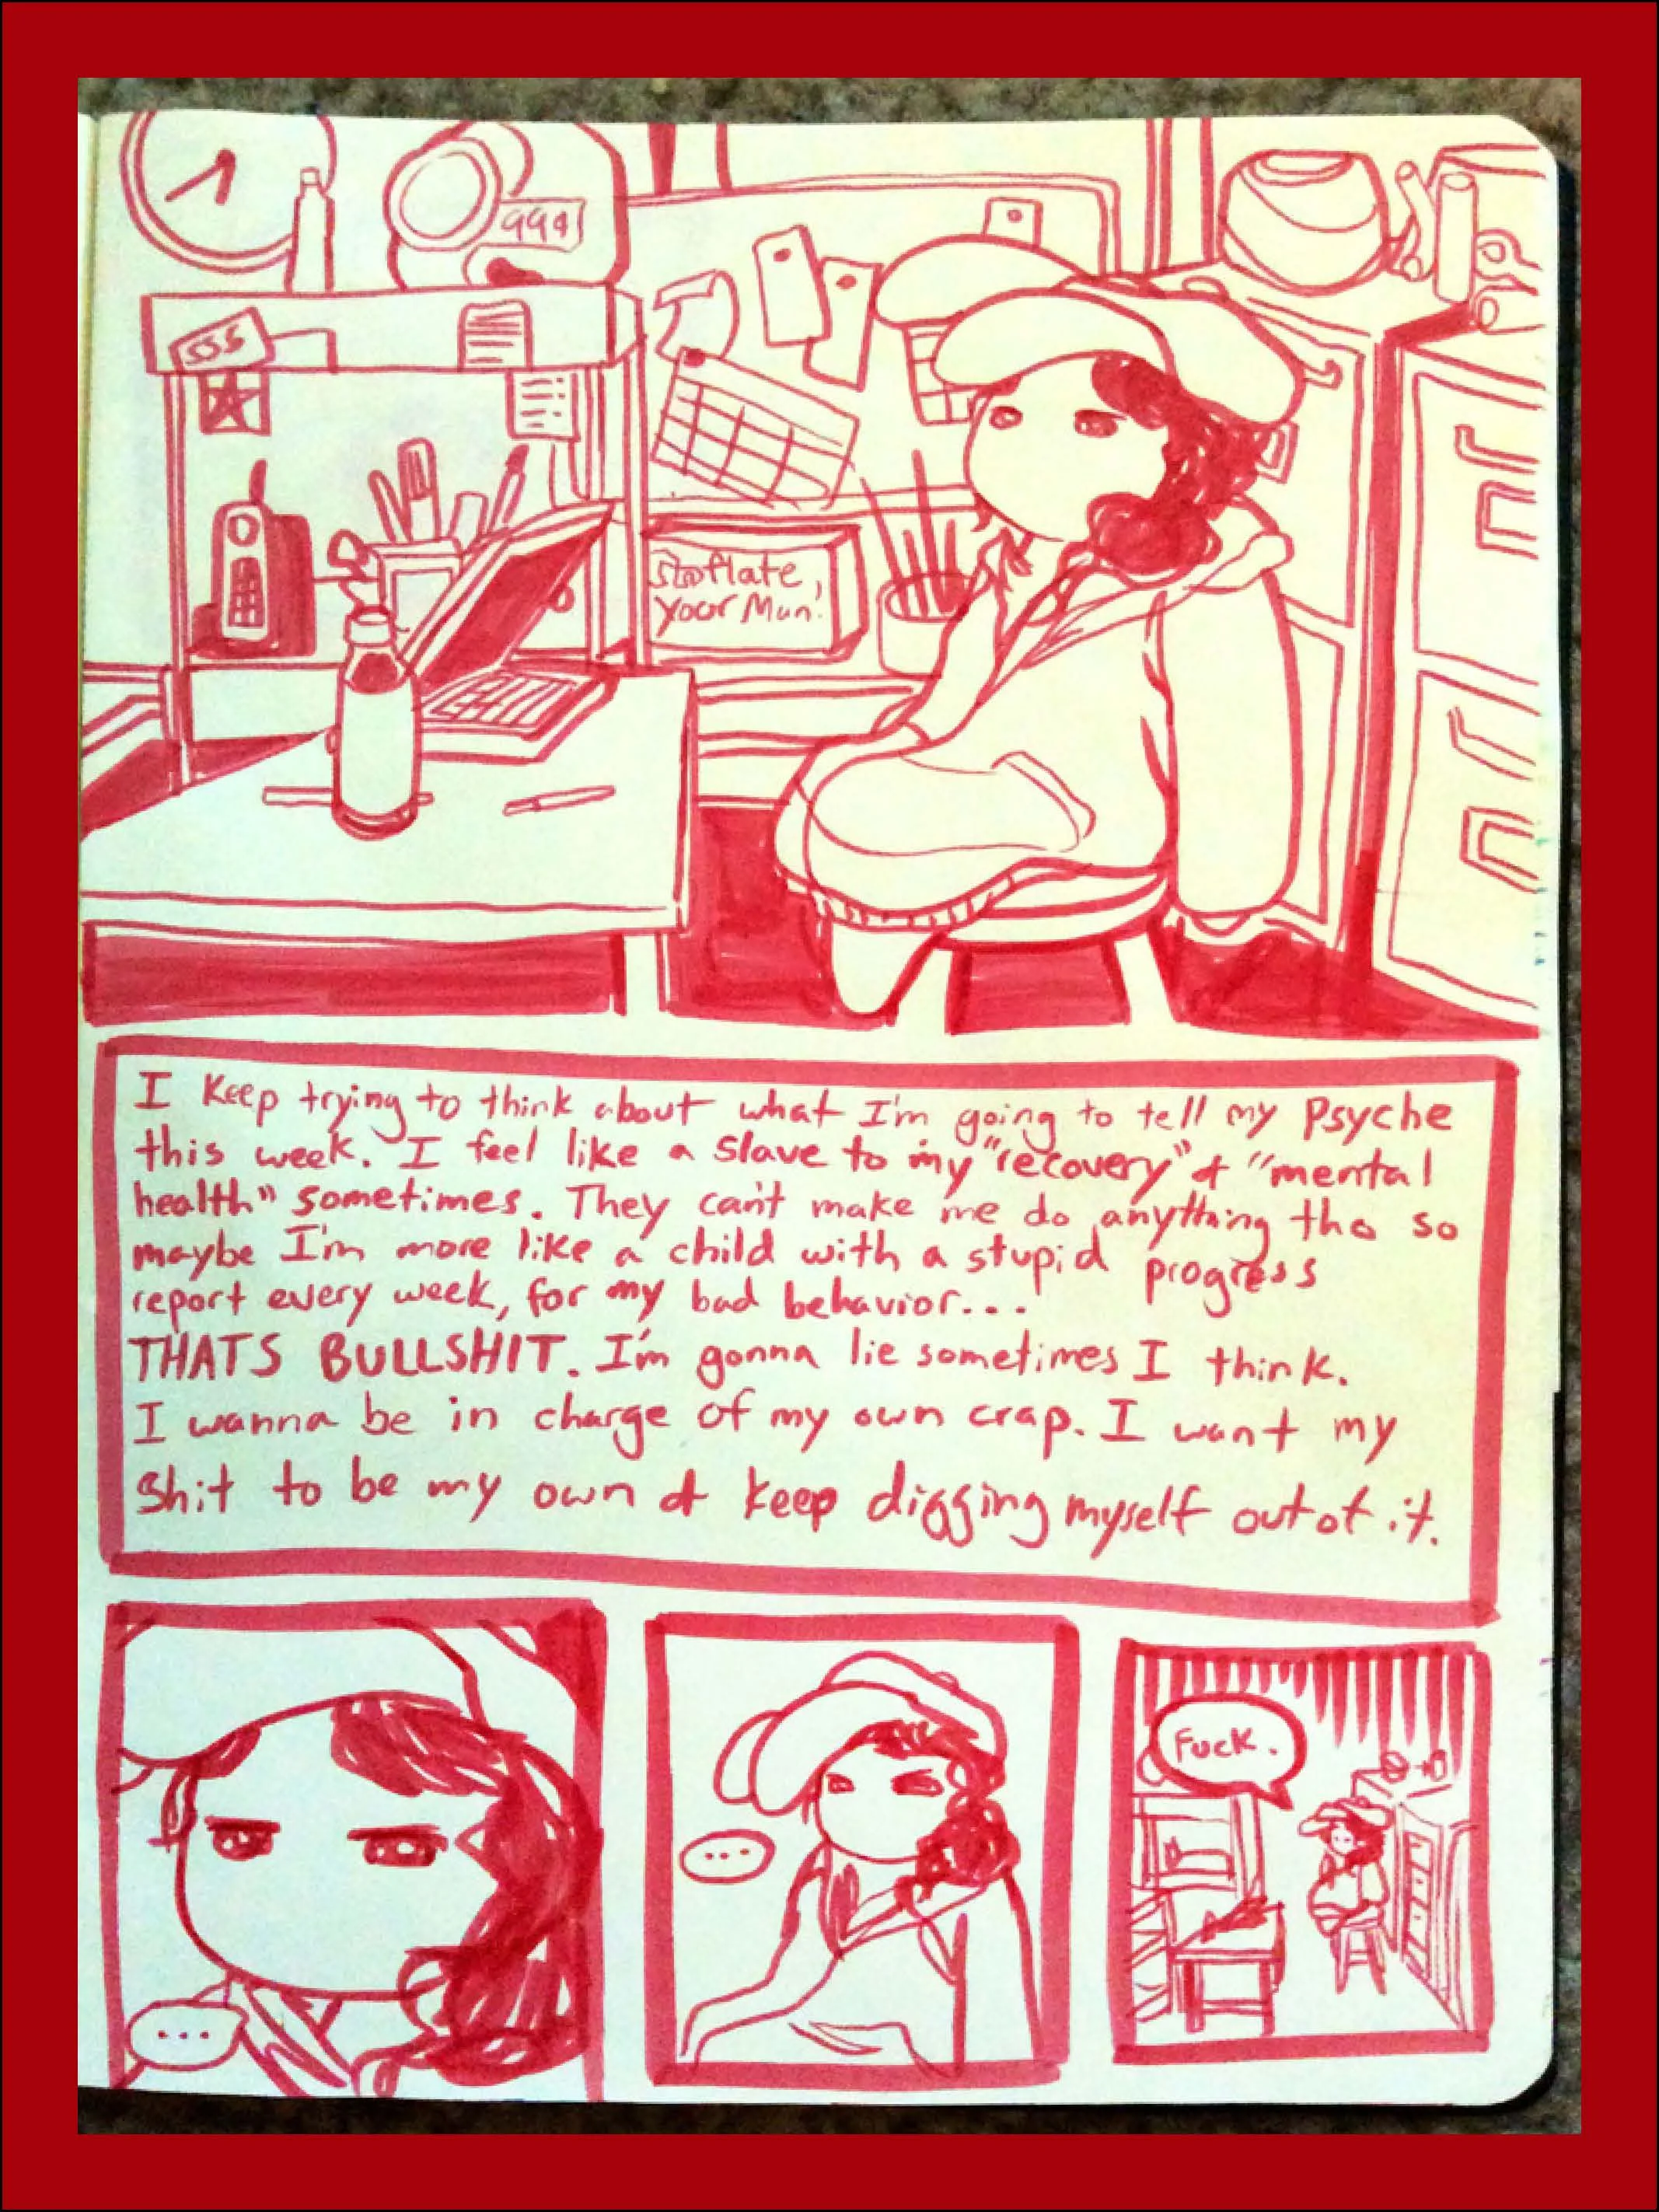 999
$$$
flate
your Man!
I keep trying to think about what I'm going to tell my Psyche
this week. I feel like a slave to my "recovery" & "mental
health" sometimes. They can't make me do anything tho so
maybe I'm more like a child with a stupid progress
report every week, for my bad behavior...
THATS BULLSHIT. I'm gonna lie sometimes I think.
I wanna be in charge of my own crap. I want my
shit to be my own & keep digging myself out of it.
...
...
Fuck.